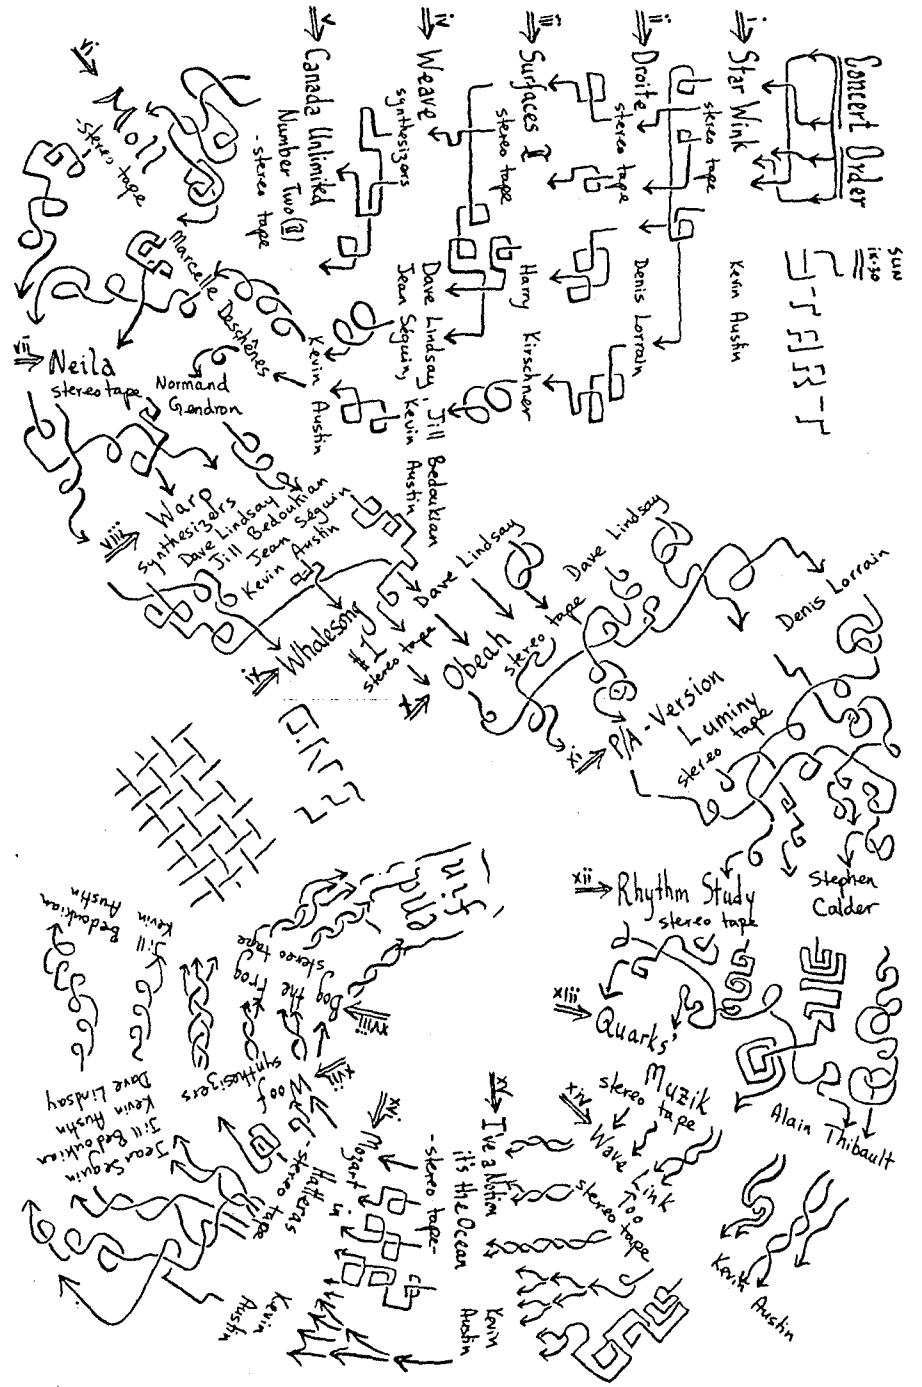 Concert Order
SUN
ix·30
i
Star Wink
stereo tape
Kevin Austin
ii
Droite
stereo tape
Denis Lorrain
iii
Surfaces II
stereo tape
Harry Kirschner
iv
Weave
synthesizers
Dave Lindsay, Jill Bedoukian
Jean Séguin, Kevin Austin
v
Canada Unlimited
Number Two (II)
- stereo tape
Kevin Austin
vi
Moll
-stereo tape
Marcelle Deschênes
vii
Neila
stereo tape
Normand
Gendron
viii
Warp
synthesizers
Dave Lindsay
Jill Bedoukian
Jean Séguin
Kevin Austin
ix
Whalesong
#1
stereo tape
Dave Lindsay
x
Obeah
stereo tape
Dave Lindsay
xi
P/A-Version
Luminy
stereo tape
Denis Lorrain
xii
Rhythm Study
stereo tape
Stephen
Calder
xiii
Quarks'
Muzik
stereo tape
Alain Thibault
xiv
Wave Link
Too
stereo tape
Kevin Austin
xv
I've a Notion
it's the Ocean
-stereo tape-
Kevin
Austin
xvi
Mozart in
Hatteras
-stereo tape
Kevin
Austin
xvii
Woof
synthesizers
Jean Seguin
Jill Bedoukian
Kevin Austin
Dave Lindsay
xviii
Dog the Frog
stereo tape
Jill Bedoukian
Kevin Austin
fin